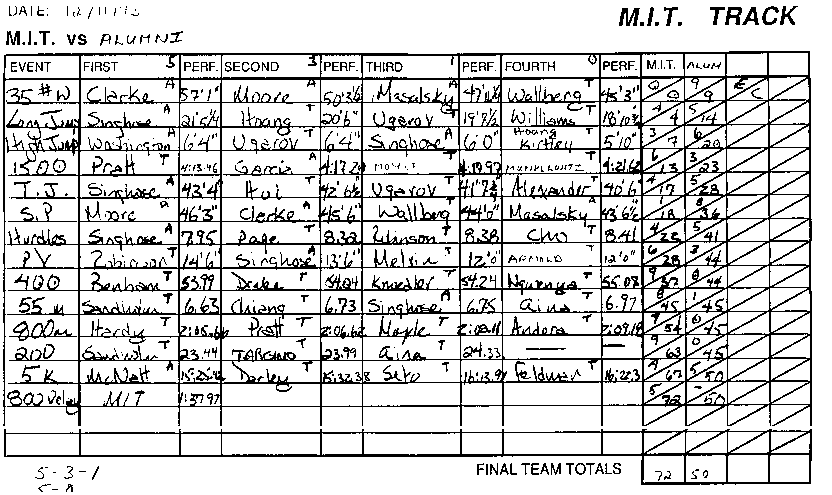 DATE:
M.I.T. TRACK
M.I.T. vs ALUMNI
EVENT FIRST 5 PERF. SECOND 3 PERF. THIRD 1 PERF. FOURTH 0 PERF. M.I.T. ALUM
35 # W Clarke A 57'1" Moore A 50'3½ Masalsky A Wallberg T 45'3" 0 0 9 9
Long Jump Singhose A 21'5¼ Hoang T 20'6" Ugarov T 19'7½ Williams T 18'10¾ 4 4 5 14
High Jump Washington A 6'4" Ugarov T 6'4" Singhose A 6'0" Hoang Kirtley T 5'10" 3 7 6 20
1500 Pratt T 4:13.46 Garcia A 4:17.29 T 4:19.97 T 4:21.62 6 13 3 23
T.J. Singhose A 43'4 Hui T 42'6½ Ugarov T 41'7½ Alexander T 40'6 4 17 5 28
S.P Moore A 46'3" Clarke A 45'6" Wallberg T 44'0" Masalsky A 43'6½ 1 18 8 36
Hurdles Singhose A 7.95 Page T 8.32 Robinson T 8.38 Cho T 8.41 4 22 5 41
PV Robinson T 14'6" Singhose A 13'6" Melvin T 12'0" Arnold T 12'0" 6 28 3 44
400 Benham T 53.99 Drake T 54.04 Knoedler T 54.24 T 55.08 9 37 0 44
55m Sandholm T 6.63 Chiang T 6.73 Singhose A 6.75 Aina T 6.97 8 45 1 45
800m Hardy T Pratt T 2:06.62 Maple T Andora T 2:09.18 9 54 0 45
200 Sandholm T 23.44 TARGINO T 23.99 Aina T 24.33 — — 9 63 0 45
5K McNatt A Darley T 15:32.38 Seto T 16:13.97 Feldman T 4 67 5 50
800 Relay MIT 1:37.97 5 72 50
FINAL TEAM TOTALS 72 50
5-3-1
5-0